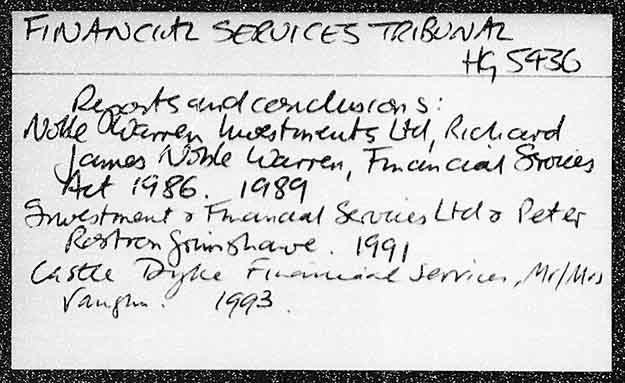 FINANCIAL SERVICES TRIBUNAL
HG 5436
Reports and conclusions:
Noble Warren Investments Ltd, Richard
James Noble Warren, Financial Services
Act 1986. 1989
Investment & Financial Services Ltd & Peter
Rostron Grimshawe. 1991
Castle Dyke Financial Services, Mr/Mrs
Vaughn. 1993.